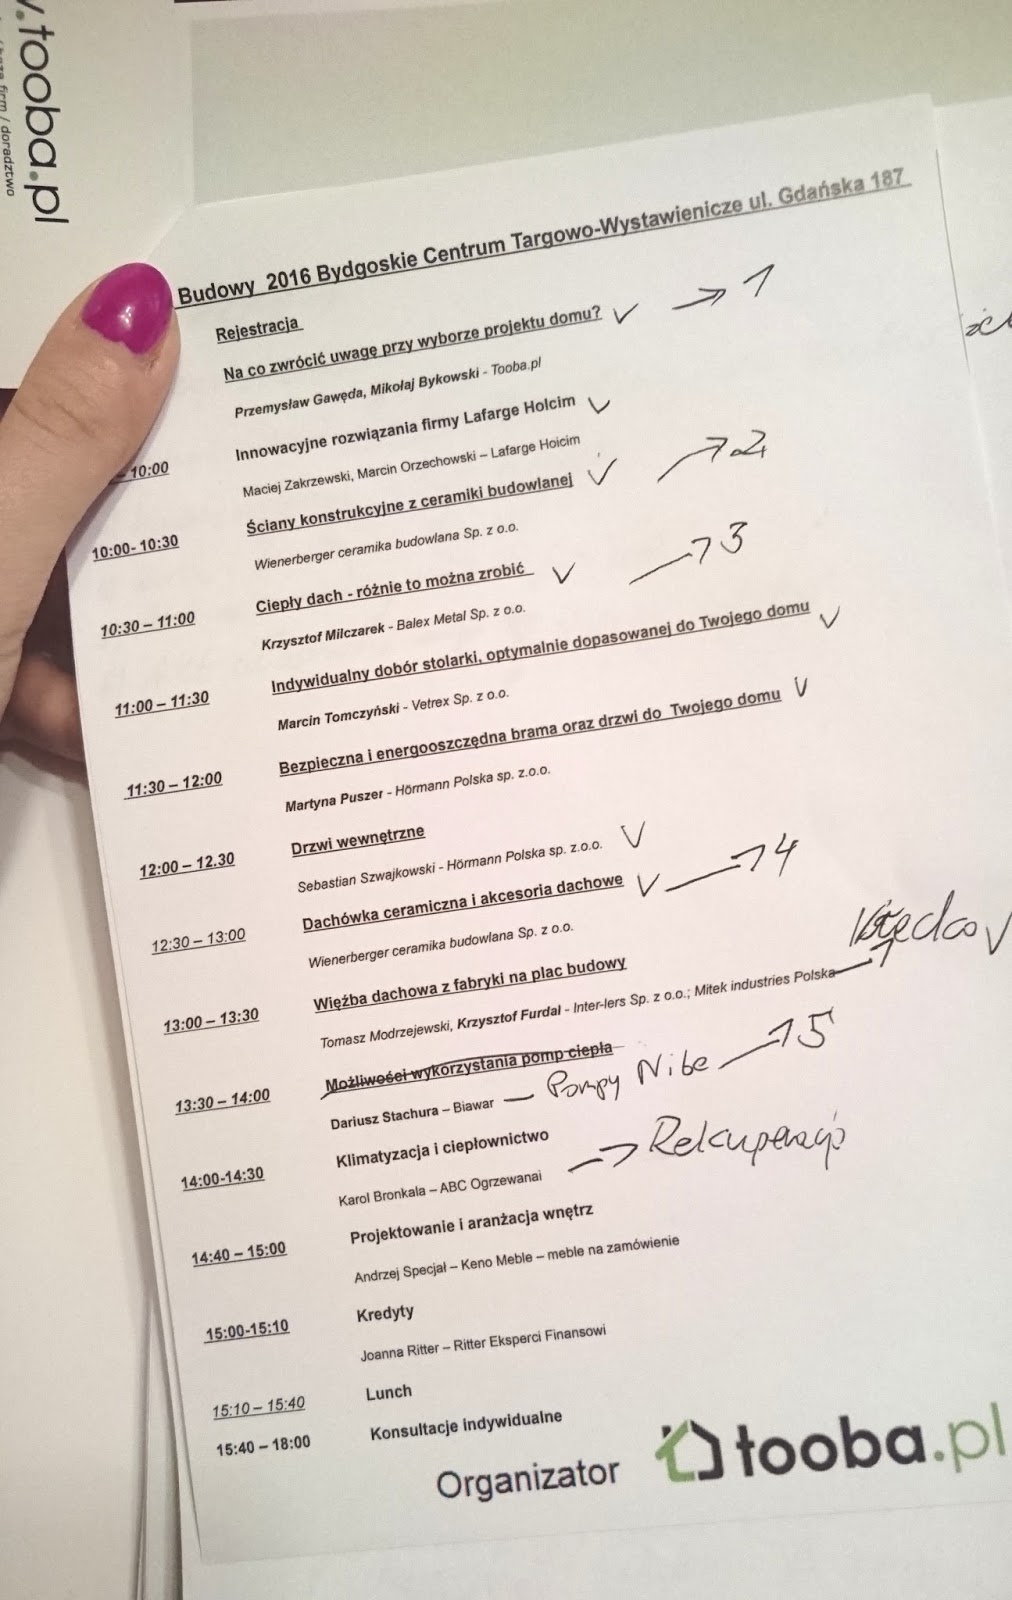 .tooba.pl
firm / doradztwo
Budowy 2016 Bydgoskie Centrum Targowo-Wystawienicze ul. Gdańska 187
Rejestracja
Na co zwrócić uwagę przy wyborze projektu domu? ✓ → 1
Przemysław Gawęda, Mikołaj Bykowski - Tooba.pl
– 10:00 Innowacyjne rozwiązania firmy Lafarge Holcim ✓
Maciej Zakrzewski, Marcin Orzechowski – Lafarge Hoicim
10:00- 10:30 Ściany konstrukcyjne z ceramiki budowlanej ✓ → 2
Wienerberger ceramika budowlana Sp. z o.o.
10:30 – 11:00 Ciepły dach - różnie to można zrobić ✓ → 3
Krzysztof Milczarek - Balex Metal Sp. z o.o.
11:00 – 11:30 Indywidualny dobór stolarki, optymalnie dopasowanej do Twojego domu ✓
Marcin Tomczyński - Vetrex Sp. z o.o.
11:30 – 12:00 Bezpieczna i energooszczędna brama oraz drzwi do Twojego domu ✓
Martyna Puszer - Hörmann Polska sp. z.o.o.
12:00 – 12.30 Drzwi wewnętrzne
Sebastian Szwajkowski - Hörmann Polska sp. z.o.o. ✓
12:30 – 13:00 Dachówka ceramiczna i akcesoria dachowe ✓ → 4
Wienerberger ceramika budowlana Sp. z o.o.
13:00 – 13:30 Więźba dachowa z fabryki na plac budowy
Tomasz Modrzejewski, Krzysztof Furdal - Inter-lers Sp. z o.o.; Mitek industries Polska → ✓
13:30 – 14:00 Możliwości wykorzystania pomp ciepła
Dariusz Stachura – Biawar — Pompy Nibe → 5
14:00-14:30 Klimatyzacja i ciepłownictwo
Karol Bronkala – ABC Ogrzewanai → Rekuperacja
14:40 – 15:00 Projektowanie i aranżacja wnętrz
Andrzej Specjał – Keno Meble – meble na zamówienie
15:00-15:10 Kredyty
Joanna Ritter – Ritter Eksperci Finansowi
15:10 – 15:40 Lunch
15:40 – 18:00 Konsultacje indywidualne
Organizator tooba.pl